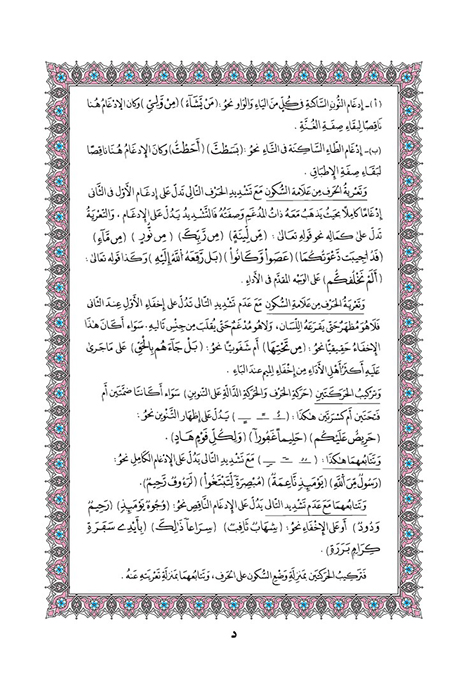 (أ) - إِدغَامِ النُّونِ السَّاكِنَةِ فِي كُلٍّ مِنَ اليَاءِ وَالوَاوِ نحوُ: (مَن يَشَآءُ) (مِن وَلِيّٖ) وَكَانَ الإِدغَامُ هُنَا
نَاقِصًا لبَقَاءِ صِفَةِ الغُنَّةِ.
(ب) - إِدغَامِ الطَّاءِ السَّاكِنَةِ فِي التَّاءِ نحوُ: (بَسَطتَ) (أَحَطتُ) وَكَانَ الإِدغَامُ هُنَا نَاقِصًا
لبَقَاءِ صِفَةِ الإِطبَاقِ.
وَتَعْرِيَةُ الحَرفِ مِن عَلَامَةِ السُّكُونِ مَعَ تَشْدِيدِ الحَرفِ التَّالِي تَدلُّ عَلَى إِدغَامِ الأَوَّلِ فِي الثَّانِي
إِدغَامًا كَامِلًا بحَيثُ يَذهَبُ مَعَهُ ذَاتُ المُدغَمِ وَصِفَتُهُ فَالتَّشدِيدُ يَدُلُّ عَلَى الإِدغَامِ، وَالتَّعْرِيَةُ
تَدلُّ عَلَى كَمَالِهِ نحوُ قَولِهِ تَعَالَى: (مِن لِّينَةٍ) (مِن رَّبِّكَ) (مِن نُّورٍ) (مِن مَّآءٍ)
(قَدْ أُجِيبَت دَّعْوَتُكُمَا) (عَصَواْ وَّكَانُواْ) (بَل رَّفَعَهُ ٱللَّهُ إِلَيْهِ) وَكَذَا قَوله تَعَالَى:
(أَلَمْ نَخْلُقكُّم) عَلَى الوَجْهِ المُقَدَّمِ فِي الأَدَاءِ.
وَتَعْرِيَةُ الحَرفِ مِن عَلَامَةِ السُّكُونِ مَعَ عَدَمِ تَشدِيدِ التَّالِي تَدُلُّ عَلَى إِخْفَاءِ الأَوَّلِ عِندَ الثَّانِي
فَلَا هُوَ مُظهَرٌ حَتَّى يَقرَعَهُ اللِّسَانُ، وَلَا هُوَ مُدغَمٌ حَتَّى يُقلَبَ مِن جِنْسِ تَالِيهِ. سَوَاءٌ أَكَانَ هَذَا
الإِخفَاءُ حَقِيقِيًّا نحوُ: (مِن تَحْتِهَا) أَم شَفَوِيًّا نحوُ: (بَلْ جَآءَهُم بِٱلْحَقِّ) عَلَى مَا جَرَى
عَلَيهِ أَكثَرُ أَهلِ الأَدَاءِ مِن إِخفَاءِ المِيمِ عِندَ البَاءِ.
وَتَركِيبُ الحَرَكَتَينِ (حَرَكَةِ الحَرْفِ وَالحَرَكَةِ الدَّالَّةِ عَلَى التَّنوِينِ) سَوَاءٌ أَكَانَتَا ضَمَّتَينِ أَم
فَتحَتَينِ أَم كَسرَتَينِ هَكَذَا: ( ـٌ ـً ـٍ ) يَدُلُّ عَلَى إِظهَارِ التَّنوِينِ نحوُ:
(حَرِيصٌ عَلَيْكُم) (حَلِيمًا غَفُورًا) (وَلِكُلِّ قَوْمٍ هَادٍ).
وَتَتَابُعُهُمَا هَكَذَا: ( ـࣱ ـࣰ ـࣲ ) مَعَ تَشدِيدِ التَّالِي يَدُلُّ عَلَى الإِدغَامِ الكَامِلِ نحوُ:
(رَسُولࣱ مِّنَ ٱللَّهِ) (يَوْمَئِذࣲ نَّاعِمَةࣱ) (مُبْصِرَةࣰ لِّتَبْتَغُواْ) (لَرَءُوفࣱ رَّحِيمࣱ).
وَتَتَابُعُهُمَا مَعَ عَدَمِ تَشدِيدِ التَّالِي يَدُلُّ عَلَى الإِدغَامِ النَّاقِصِ نحوُ: (وُجُوهࣱ يَوْمَئِذࣲ) (رَحِيمࣱ
وَدُودࣱ) أَو عَلَى الإِخفَاءِ نحوُ: (شِهَابࣱ ثَاقِبࣱ) (سِرَاعࣰا ذَٰلِكَ) (بِأَيْدِي سَفَرَةࣲ
كِرَامِۭ بَرَرَةࣲ)
فَتَركِيبُ الحَرَكَتَينِ بمَنزِلَةِ وَضعِ السُّكُونِ عَلَى الحَرفِ، وَتَتَابُعُهُمَا بمَنزِلَةِ تَعرِيَتِهِ عَنهُ.
د